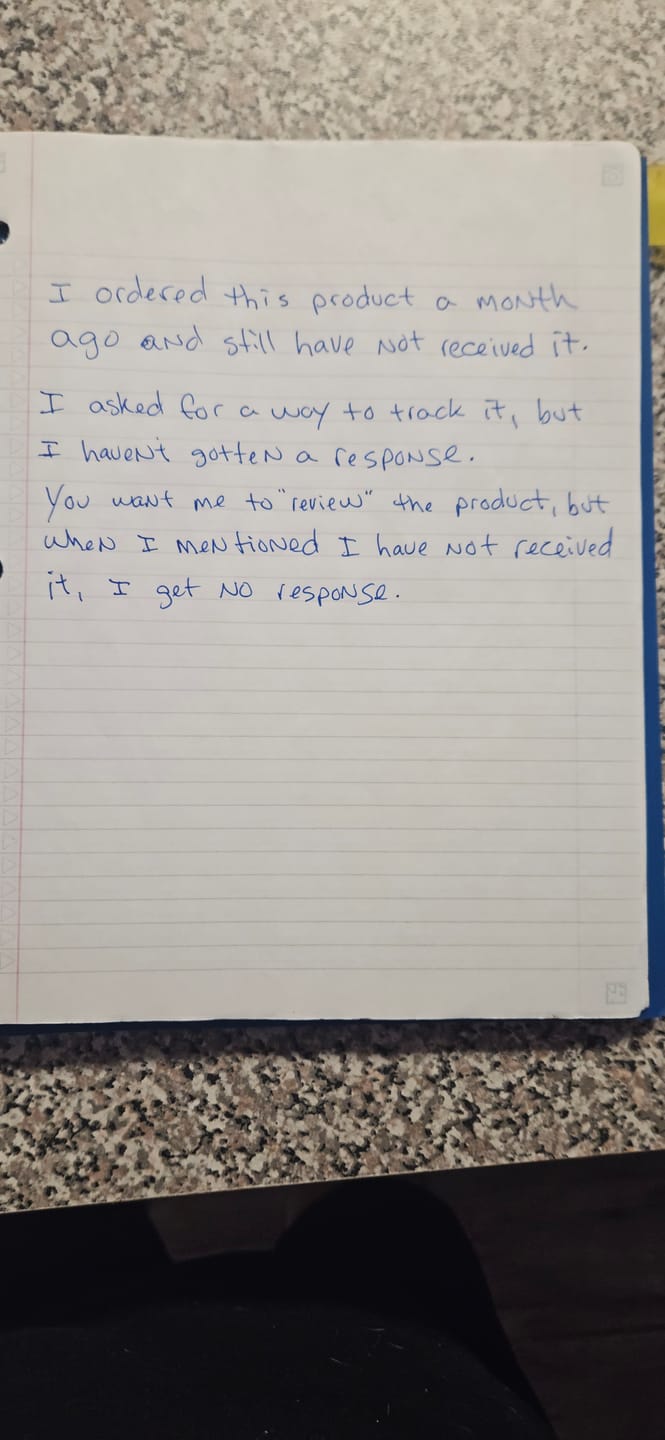 I ordered this product a month
ago and still have not received it.
I asked for a way to track it, but
I haven't gotten a response.
You want me to "review" the product, but
when I mentioned I have not received
it, I get no response.